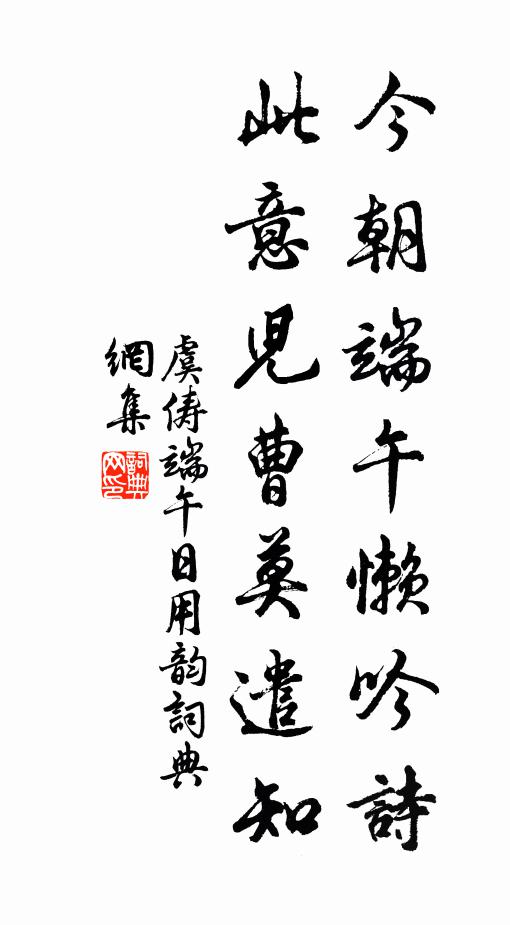 今朝端午懶吟詩
此意兒曹莫遣知
虞俦端午日用韵詞典
網集
詞典
网印